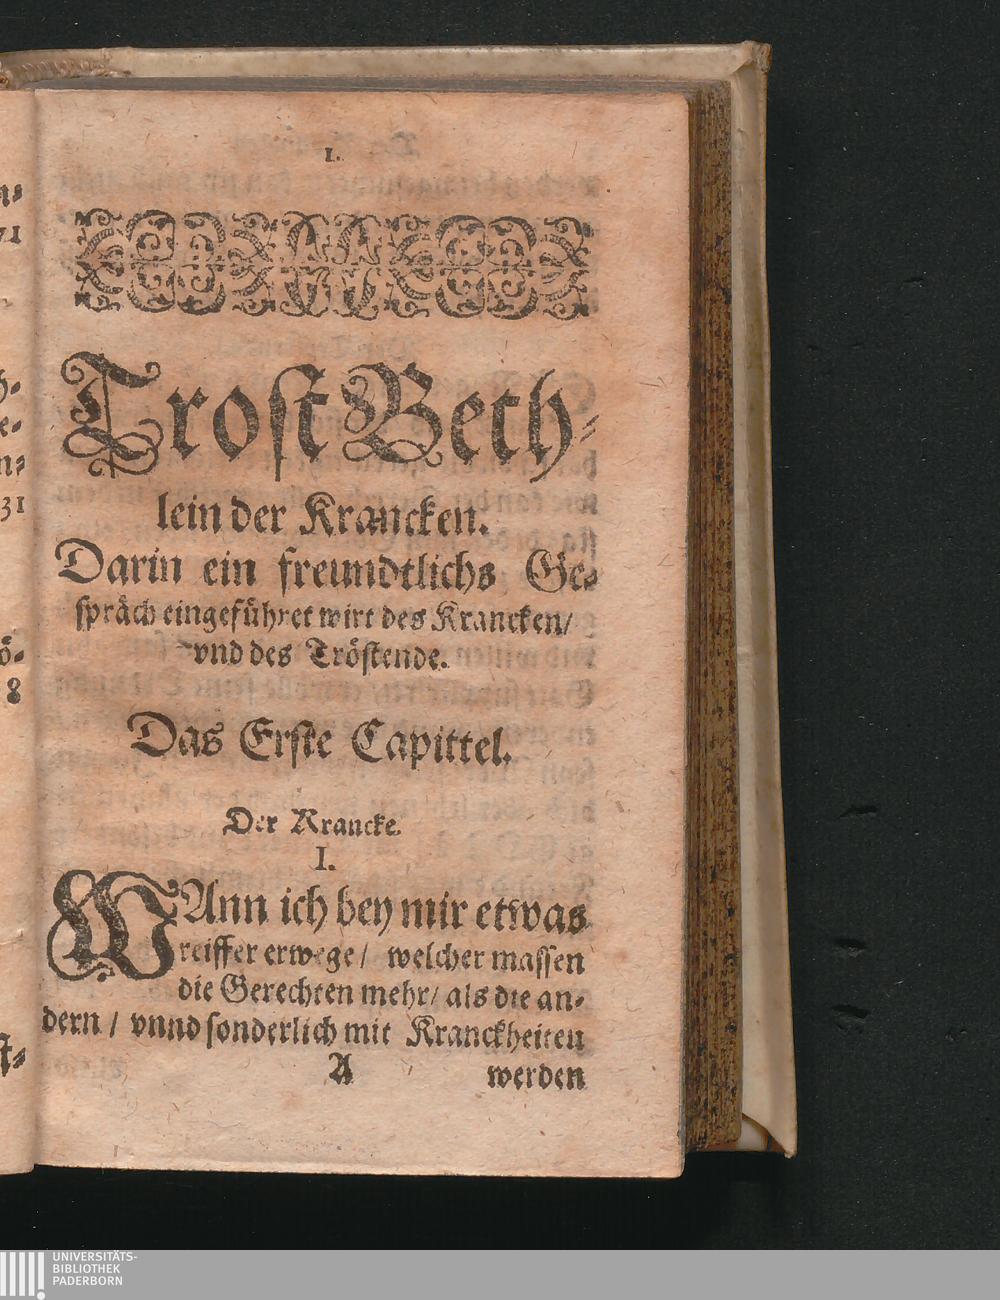 1.
Trost Beth⸗
lein der Krancken.
Darin ein freundtlichs Ge⸗
spräch eingeführet wirt des Krancken/
vnd des Tröstende.
Das Erste Capittel.
Der Krancke.
I.
WAnn ich bey mir etwas
reiffer erwege / welcher massen
die Gerechten mehr / als die an⸗
dern / vnnd sonderlich mit Kranckheiten
A werden
71
31
8
UNIVERSITÄTS-
BIBLIOTHEK
PADERBORN